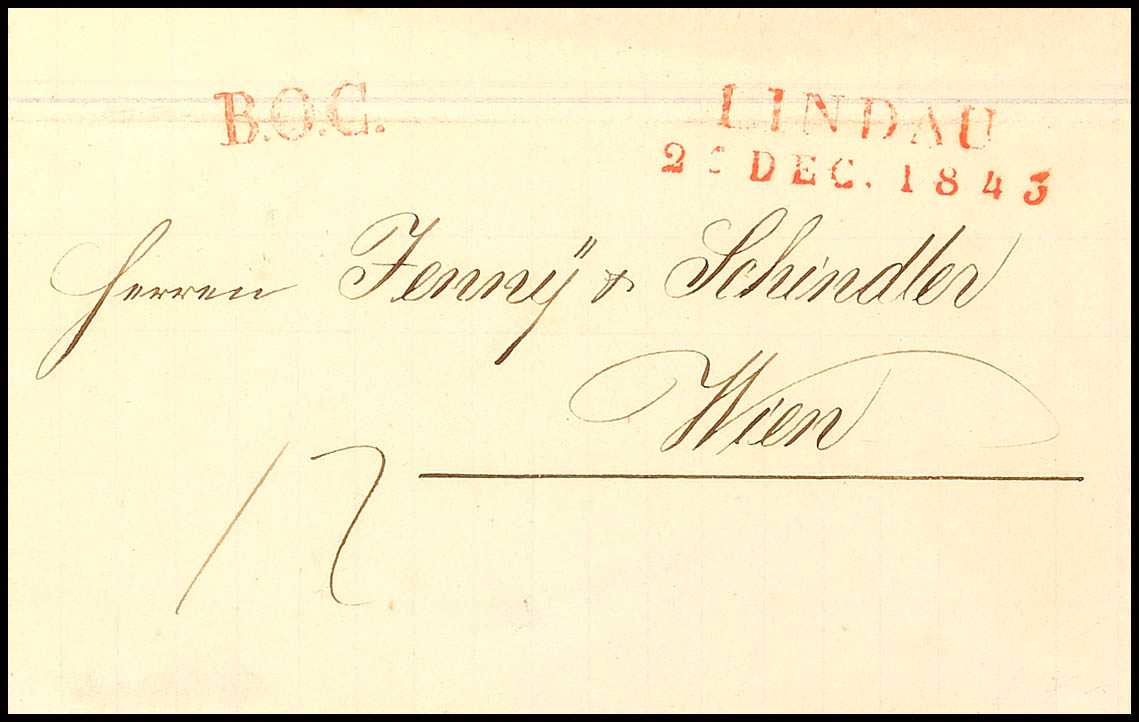 B.O.C.
LINDAU
DEC. 1843
Herren Jennÿ & Schindler
Wien
12